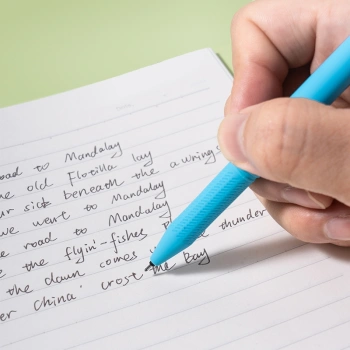 oad to Mandalay
e old Flotilla lay
ur sick beneath the awnings
we went to Mandalay
e road to Mandalay
e the flyin'-fishes thunder
the dawn comes
er China' crost the Bay